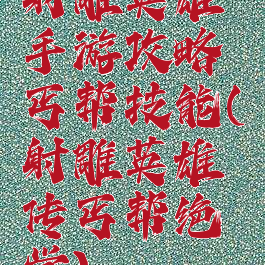 射雕英雄
手游攻略
丐帮技能(
射雕英雄
传丐帮绝
学)